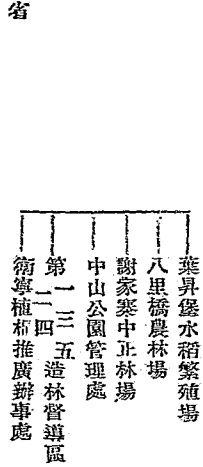 省
葉昇堡水稻繁殖場
八里橋農林場
謝家寨中正林場
中山公園管理處
第一二三四五造林督導區
衛寧植棉推廣辦事處